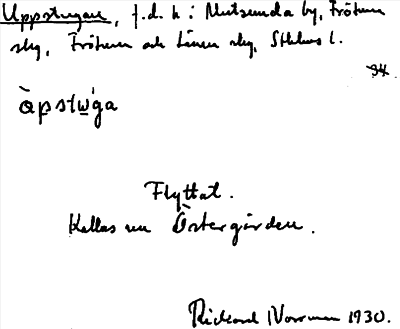 Uppstugan, f.d. h: Mutsunda by, Frötuna
skg, Frötuna och Länna skg, Sthlms l.
34.
åpstẁga
Flyttat.
Kallas nu Östergården.
Rickard Norrman 1930.